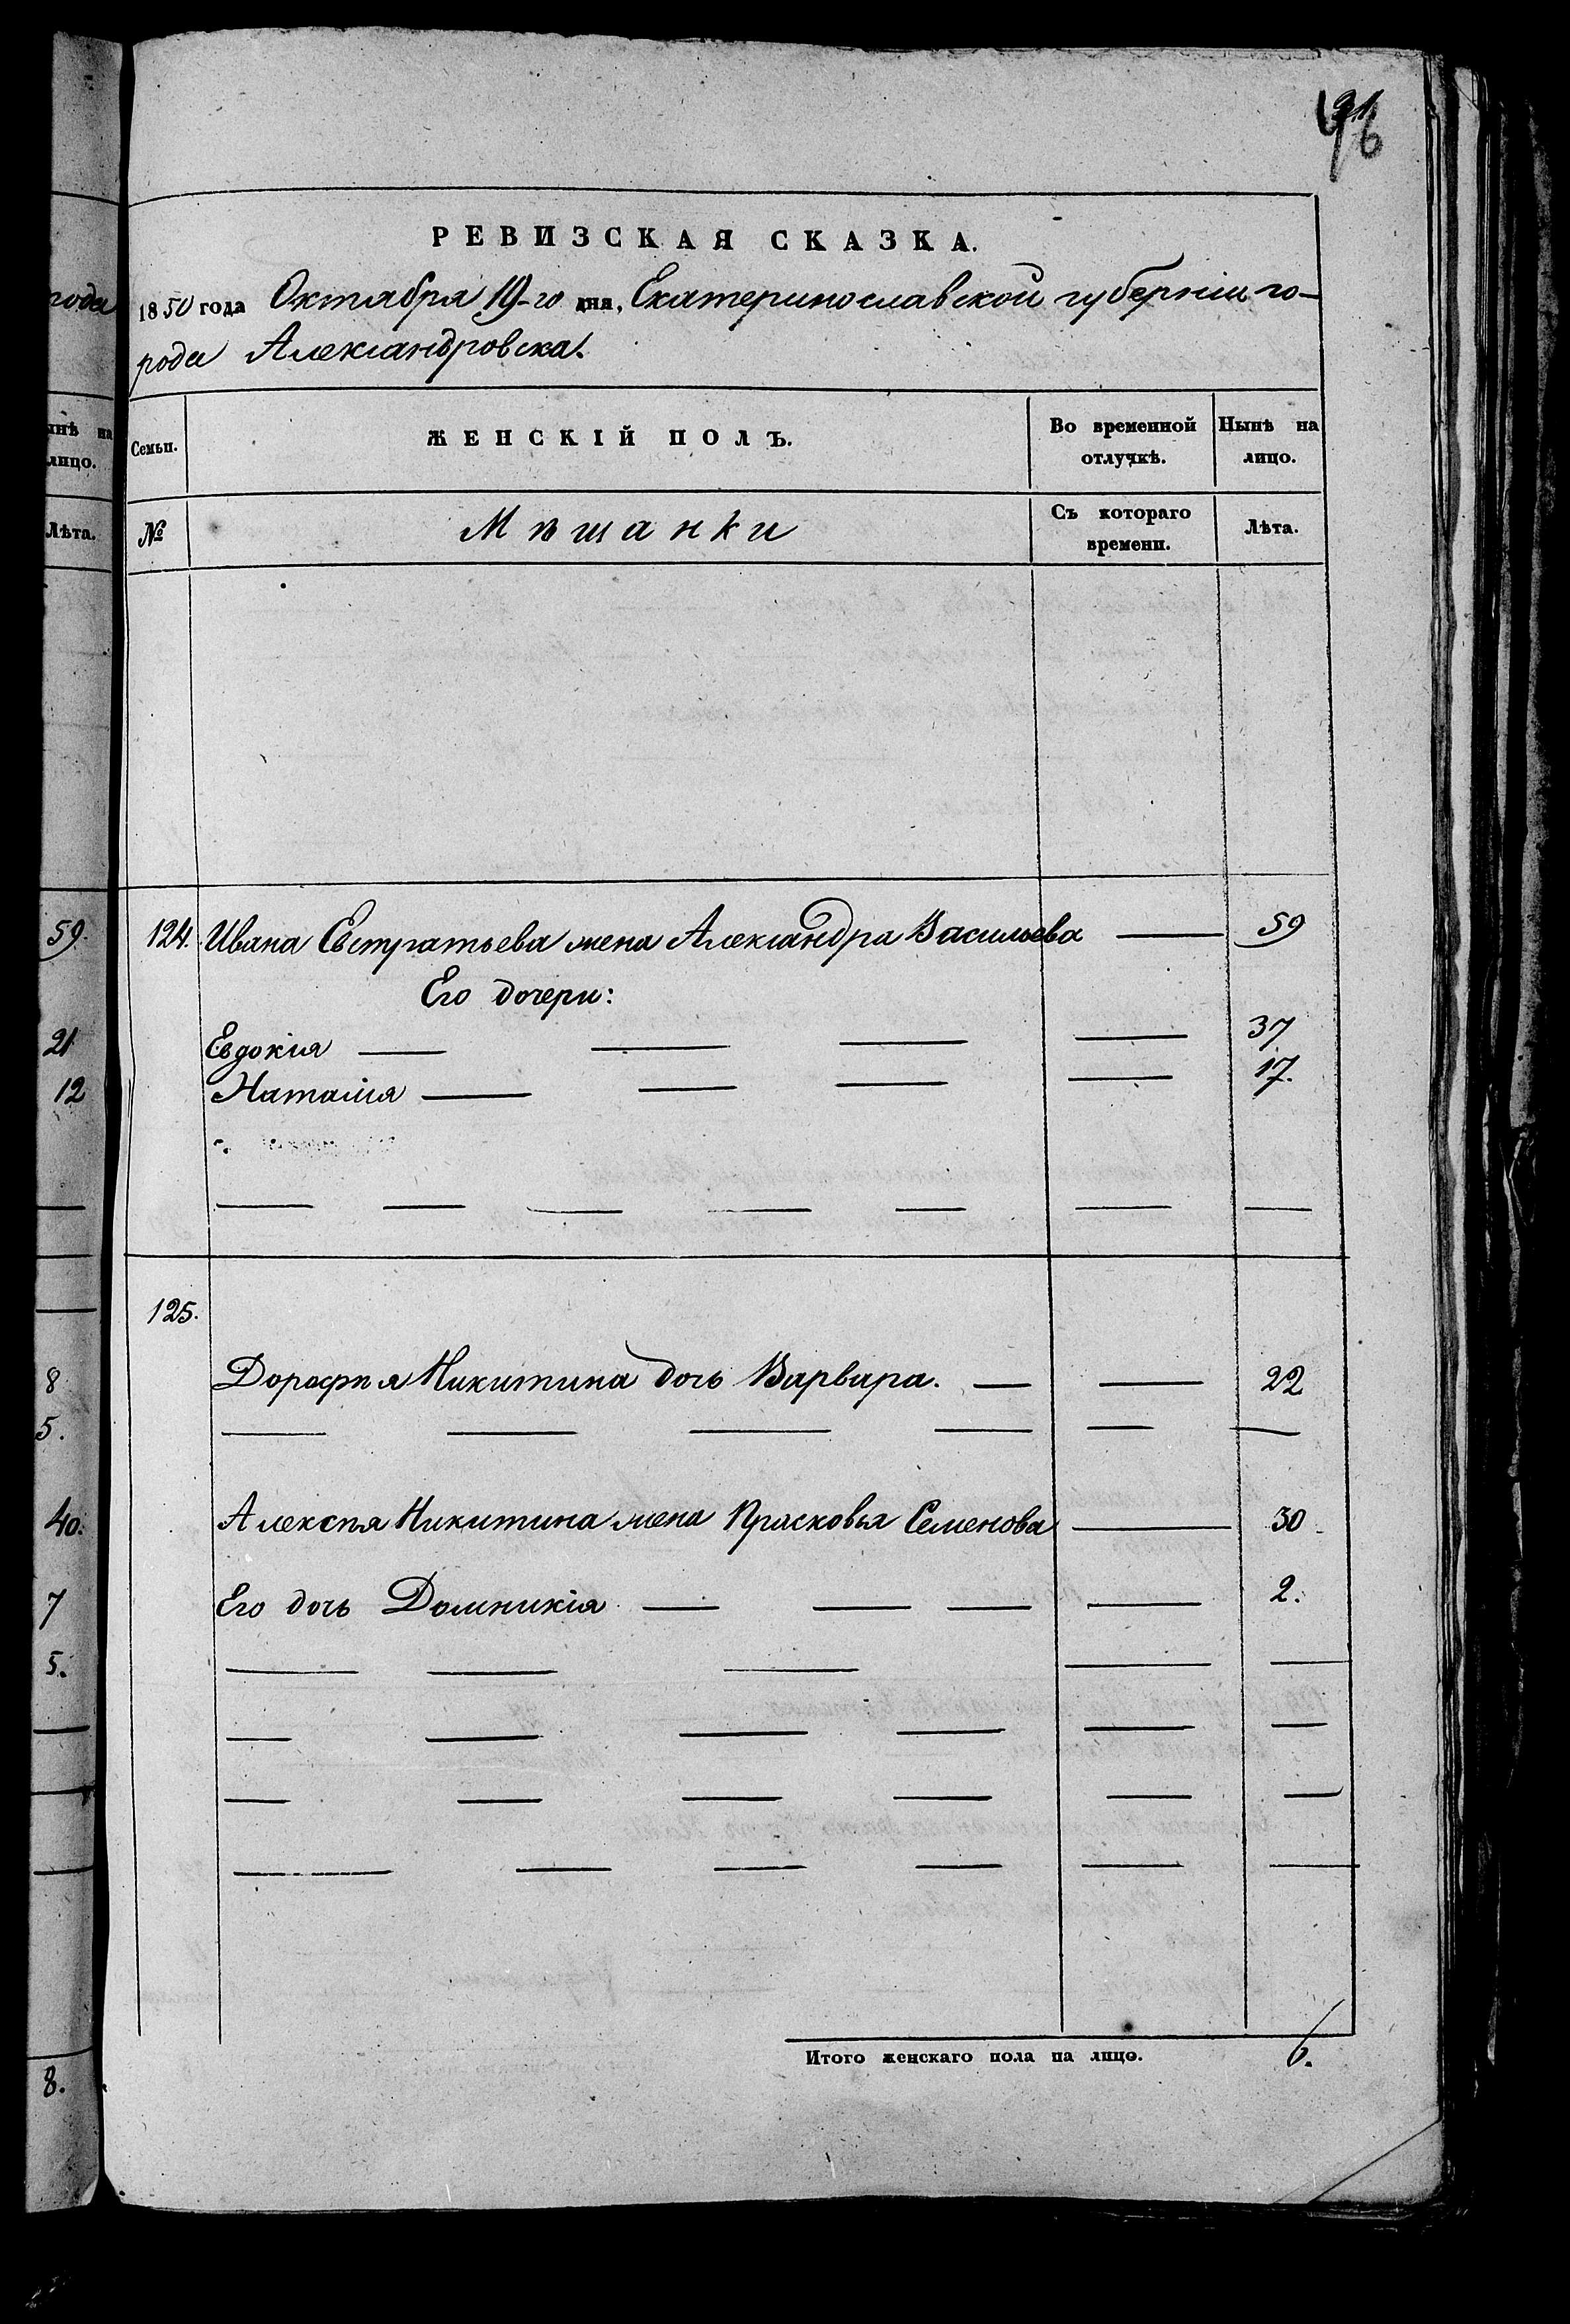 РЕВИЗСКАЯ СКАЗКА.
года 1850 года Октября 19-го дня, Екатеринославской губерніи го-
рода Александровска.
Семьи. ЖЕНСКІЙ ПОЛЪ. Во временной отлучкѣ. Нынѣ на лицо.
лицо.
Лѣта. № Мѣщанки Съ котораго времени. Лѣта.
59. 124. Ивана Евстратьева жена Александра Васильева 59
Его дочери:
21 Евдокія 37
12 Наталія 17.
125.
8 Дорофѣя Никитина дочь Варвара. 22
5.
40. Алексѣя Никитина жена Прасковья Семенова 30
7 Его дочь Домникія 2.
5.
Итого женскаго пола на лицо. 6.
8.